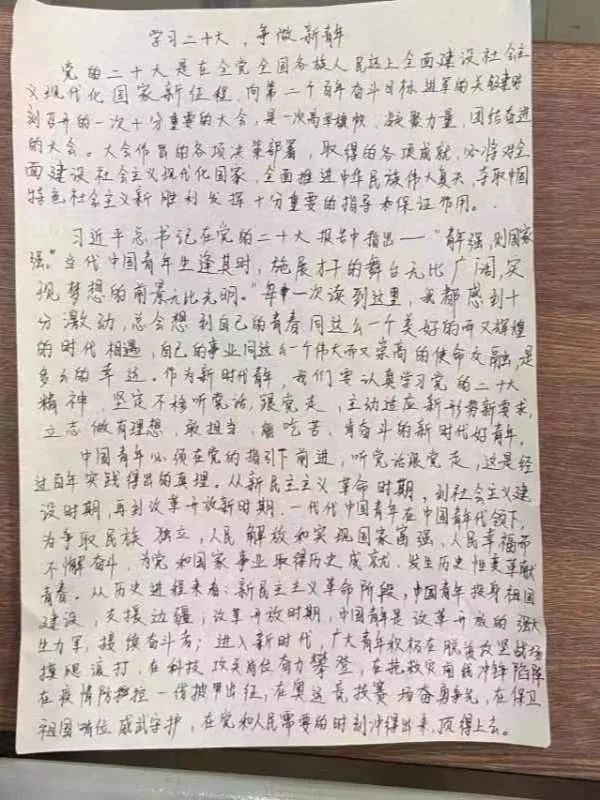 学习二十大，争做新青年
党的二十大是在全党全国各族人民迈上全面建设社会主
义现代化国家新征程，向第二个百年奋斗目标进军的关键时
刻召开的一次十分重要的大会，是一次高举旗帜，凝聚力量，团结奋进
的大会。大会作出的各项决策部署，取得的各项成就，必将对全
面建设社会主义现代化国家，全面推进中华民族伟大复兴，夺取中国
特色社会主义新胜利发挥十分重要的指导和保证作用。
习近平总书记在党的二十大报告中指出——"青年强，则国家
强。"当代中国青年生逢其时，施展才干的舞台无比广阔，实
现梦想的前景无比光明。"每一次读到这里，我都感到十
分激动，总会想到自己的青春同这么一个美好的而又辉煌
的时代相遇，自己的事业同这么一个伟大而又崇高的使命交融，是
多么的幸运。作为新时代青年，我们要认真学习党的二十大
精神，坚定不移听党话，跟党走，主动适应新形势新要求，
立志做有理想，敢担当，能吃苦，肯奋斗的新时代好青年。
中国青年必须在党的指引下前进，听党话跟党走，这是经
过百年实践得出的真理。从新民主主义革命时期，到社会主义建
设时期，再到改革开放新时期，一代代中国青年在中国青年代领下，
为争取民族独立，人民解放和实现国家富强，人民幸福而
不懈奋斗，为党和国家事业取得历史成就，发生历史性变革献
青春。从历史进程来看：新民主主义革命阶段，中国青年投身祖国
建设，支援边疆；改革开放时期，中国青年是改革开放的强大
生力军，接续奋斗者；进入新时代，广大青年积极在脱贫攻坚战场
摸爬滚打，在科技攻关岗位奋力攀登，在抢救灾前线冲锋陷阵
在疫情防控一线披甲出征，在奥运竞技赛场奋勇争先，在保卫
祖国岗位威武守护，在党和人民需要的时刻冲得出来，顶得上去。